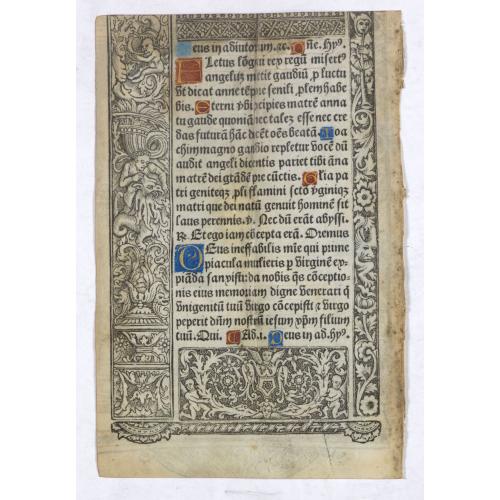 Deus in adiutorium. ac̄. Āne. Hyᵒ.
Fletus lōgui rex regū misertᵒ
angelū mittit gaudiū, p luctu
vt dicat anne tēpore senili, plem habe
bis. Eterni vbi cipies matrē anna
tu gaude quoniā nec talez esse nec cre
das futurā hāc dicēt oēs beatā. Joa
chim magno gaudio repletur vocē dū
audit angeli dicentis pariet tibi āna
matrē dei grādē pre cūctis. Gloria pa
tri genitoqz, pli flamini scto ꝟginiqz
matri que dei natū genuit hominē sit
laus perennis. ꝟ. Nec dū erāt abyssi.
℞. Et ego iam cōcepta erā. Oremus
Deus ineffabilis mīe qui prime
piacula mulieris p ꝟginē ex
piāda sanxisti: da nobis qs̄ cōceptio
nis eius memoriam digne venerari q̄
vnigenitū tuū virgo cōcepist̄ z virgo
peperit dn̄m nostrū iesum xp̄m filium
tuū. Qui. Ad. i. Deus in ad. Hyᵒ.